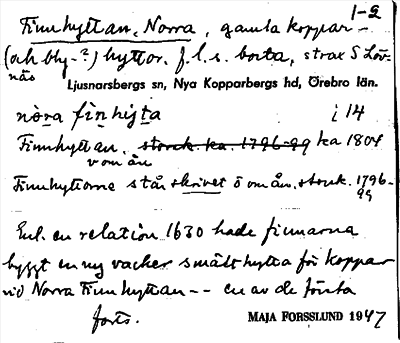 1-2
Finnhyttan, Norra, gamla koppar-
(och bly-?) hyttor, f.l.s. borta, strax S Löv-
näs
Ljusnarsbergs sn, Nya Kopparbergs hd, Örebro län.
nòra fìnhyta i 14
Finnhyttan, storsk. ka. 1796-99 ka 1804
v om ån
Finnhyttorne står skrivet ö om ån, storsk. 1796-
99
Enl. en relation 1630 hade finnarna
byggt en ny vacker smälthytta för koppar
vid Norra Finnhyttan -- en av de första
forts.
MAJA FORSSLUND 1947